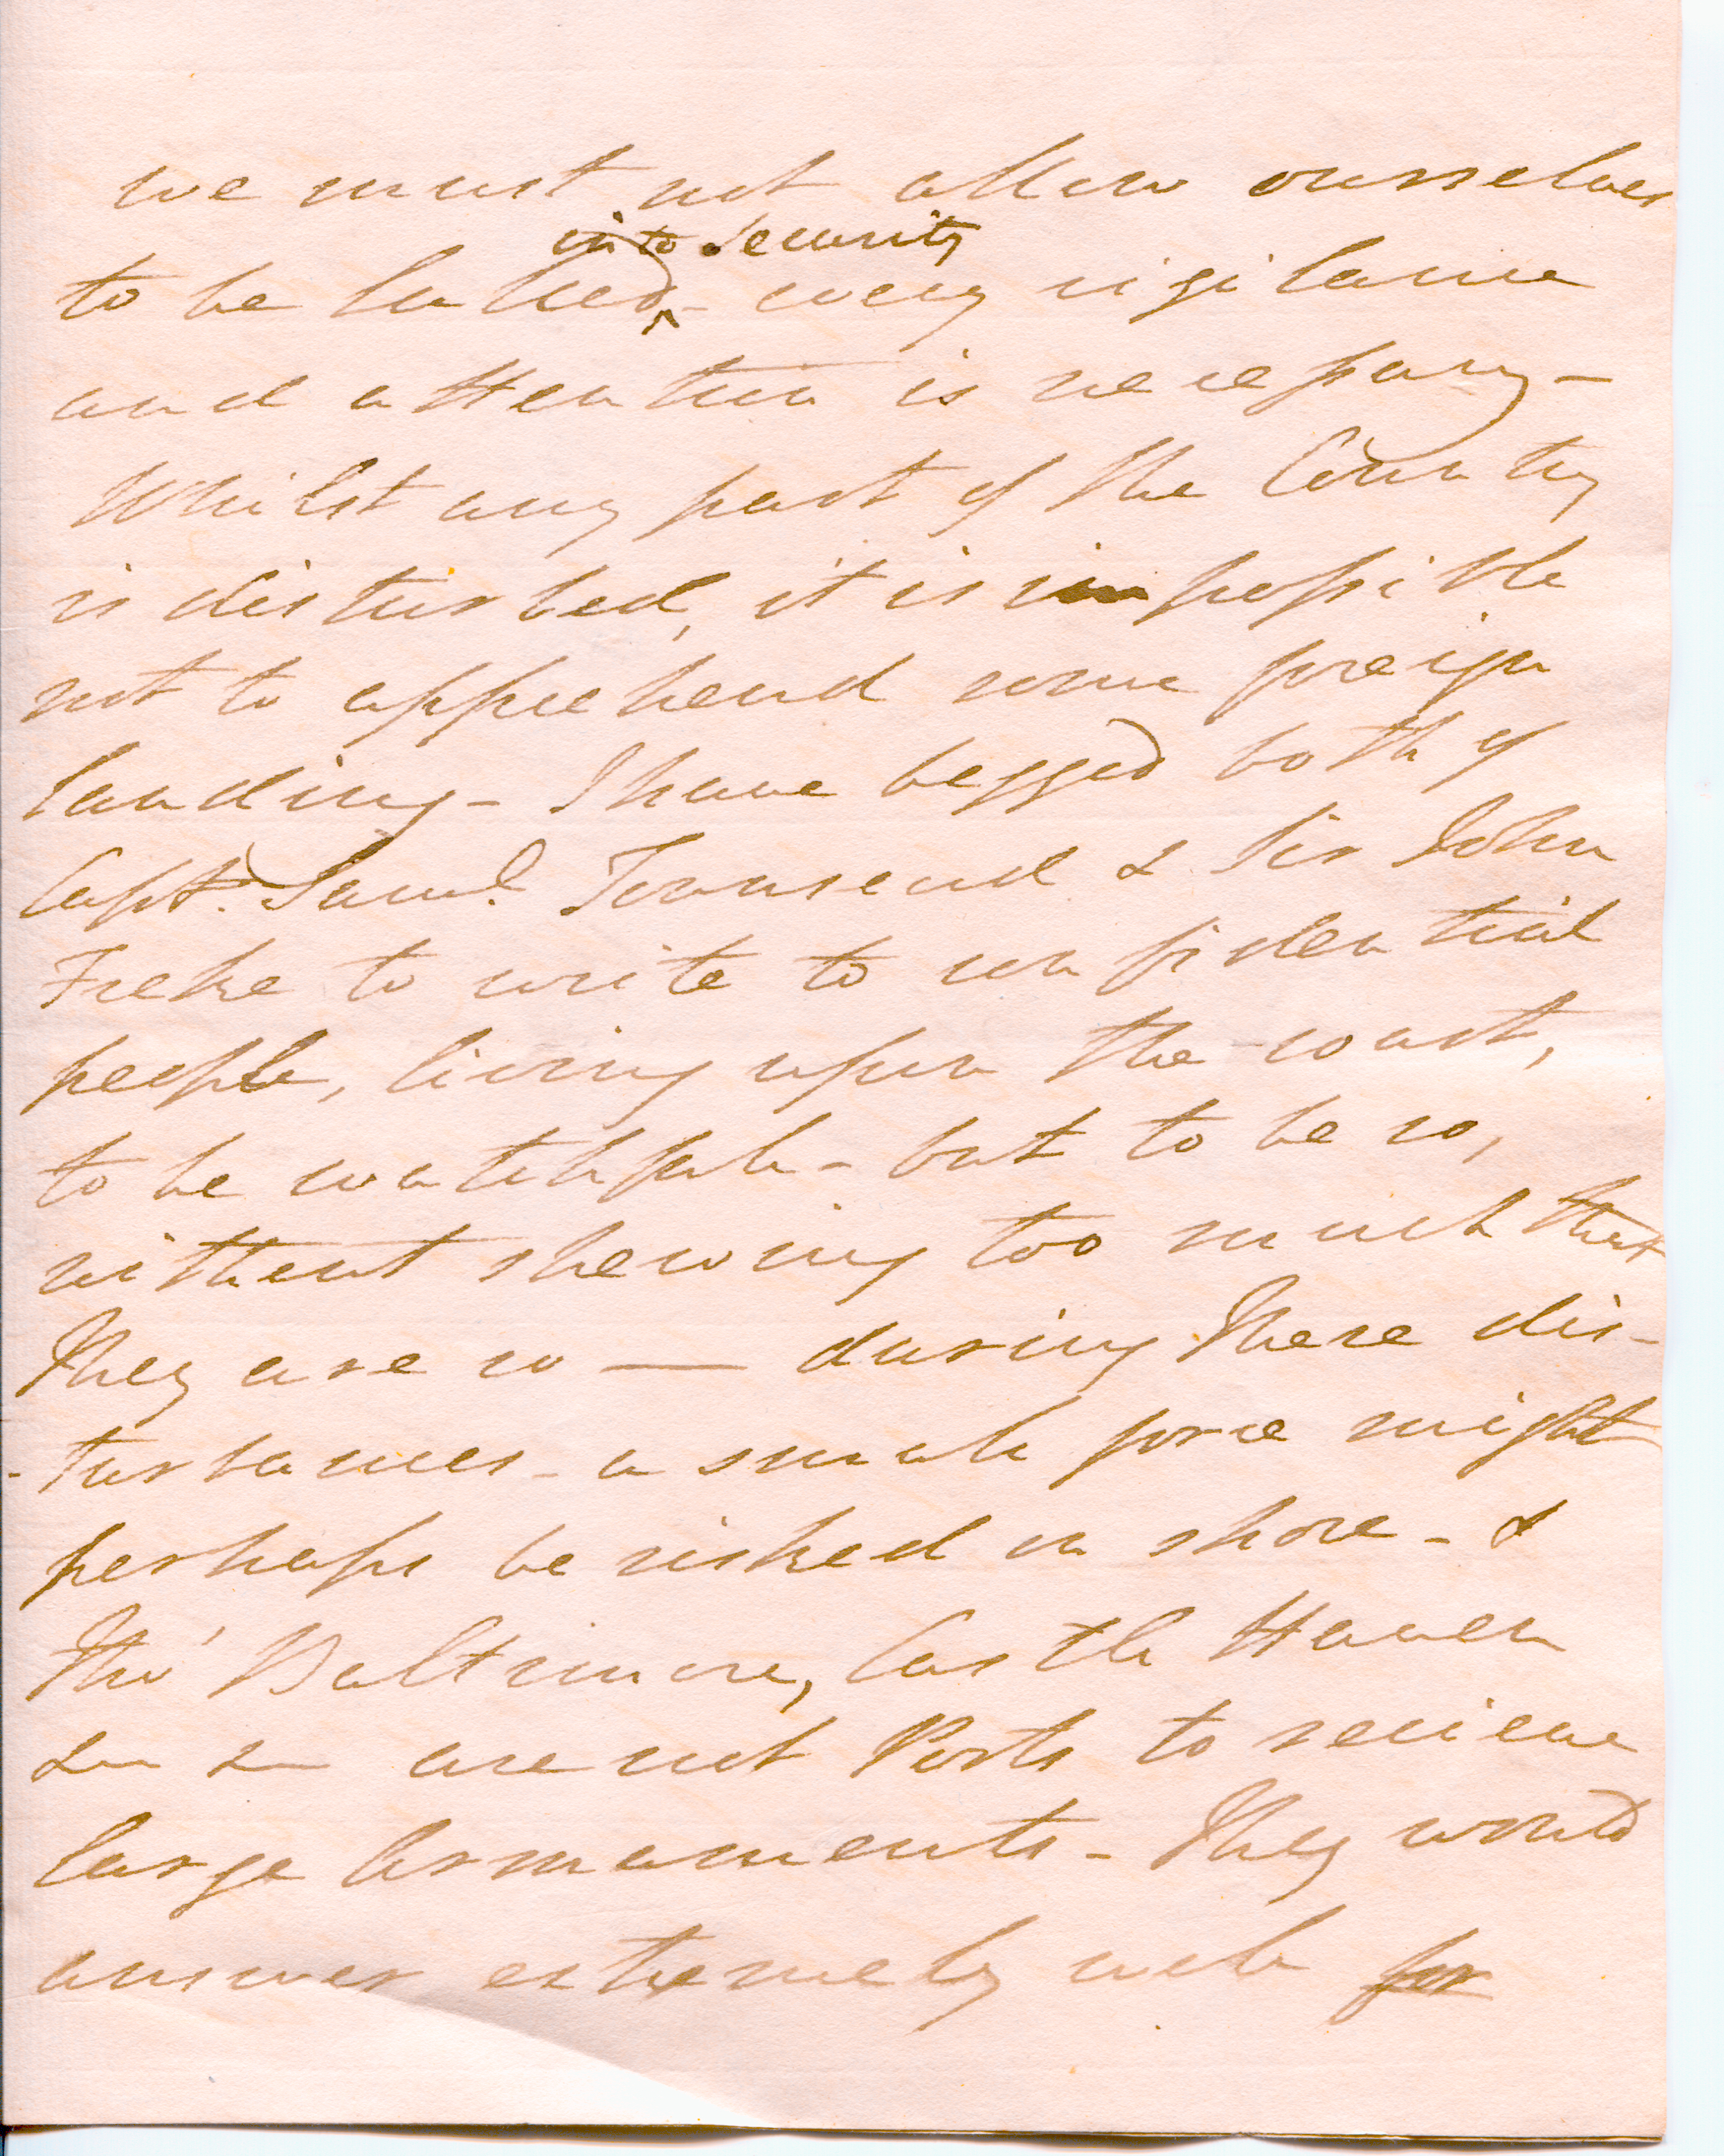 we must not allow ourselves
into security
to be lulled - every vigilance
and attention is necessary -
Whilst any part of the Country
is disturbed, it is impossible
not to apprehend some foreign
landing - I have begged both of
Capt. Saml. Townsend & Sir John
Freke to write to confidential
people, living upon the coast,
to be watchfull - but to be so,
without shewing too much that
they are so — during these dis-
-turbances - a small force might
perhaps be risked on shore - &
tho' Baltimore, Castle Haven
&c &c are not Ports to recieve
large Armaments - They would
answer extremely well for